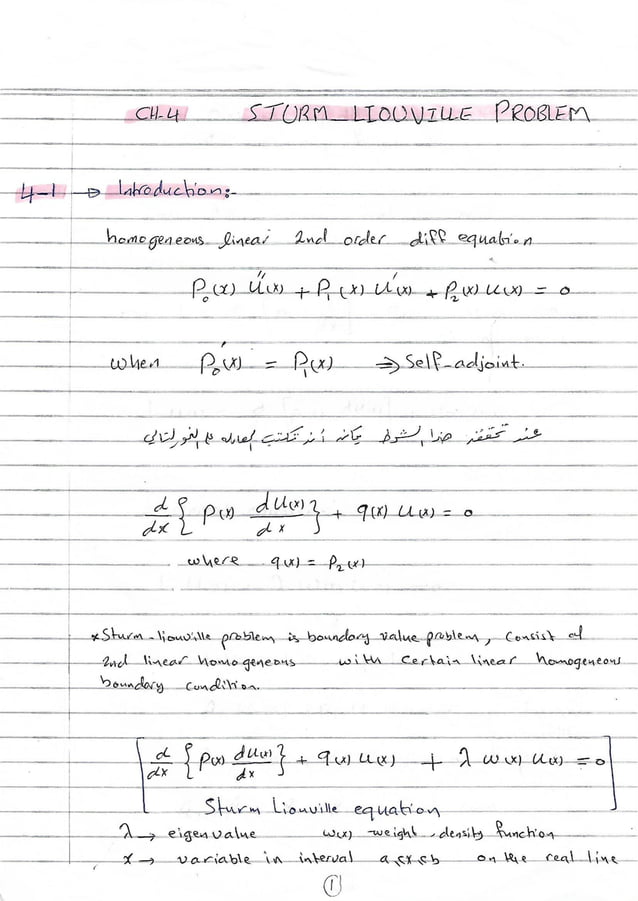 CH-4 STURM-LIOUVILLE PROBLEM
4-1 → Introduction:-
homogeneous linear 2nd order diff equation
P₀(x) U''(x) + P₁(x) U'(x) + P₂(x) U(x) = 0
when P₀'(x) = P₁(x) ⇒ Self-adjoint.
عند تحقق هذا الشرط يمكن أن تكتب المعادله على النحو التالي
d/dx { P(x) dU(x)/dx } + q(x) U(x) = 0
where q(x) = P₂(x)
*Sturm-liouville problem is boundary value problem, Consist of
2nd linear homogeneous with certain linear homogeneous
boundary condition.
[ d/dx { P(x) dU(x)/dx } + q(x) U(x) + λ w(x) U(x) = 0 ]
Sturm Liouville equation
λ → eigenvalue w(x) - weight, density function
x → variable in interval a≤x≤b on the real line
1